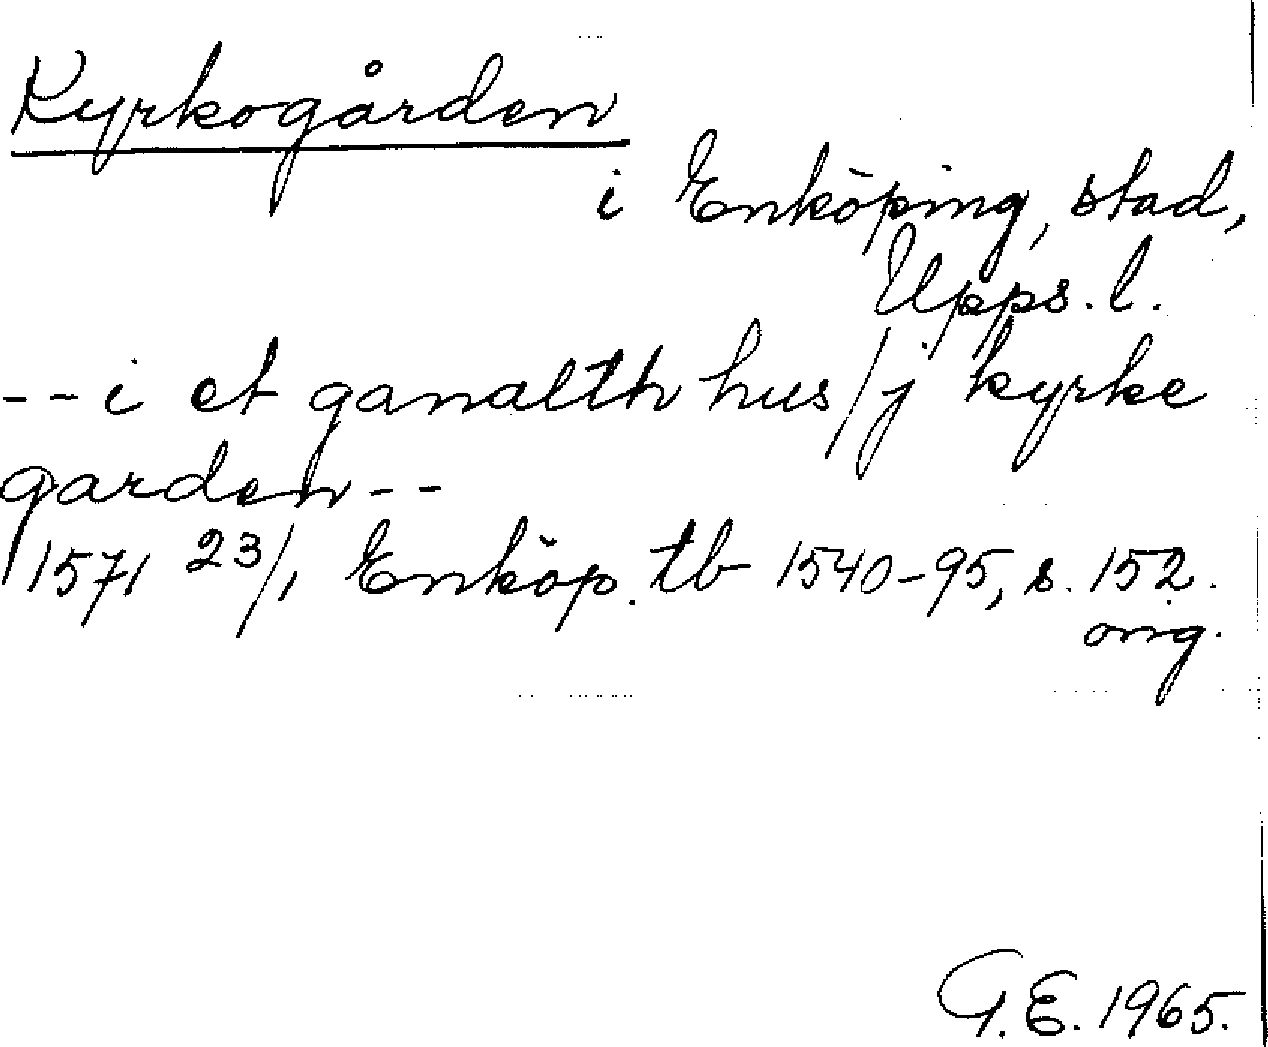 Kyrkogården
i Enköping, stad,
Upps. l.
-- i et gamalth hus / j kyrke
garden --
1571 23/1 Enköp. tb 1540-95, s. 152.
orig.
G.E. 1965.